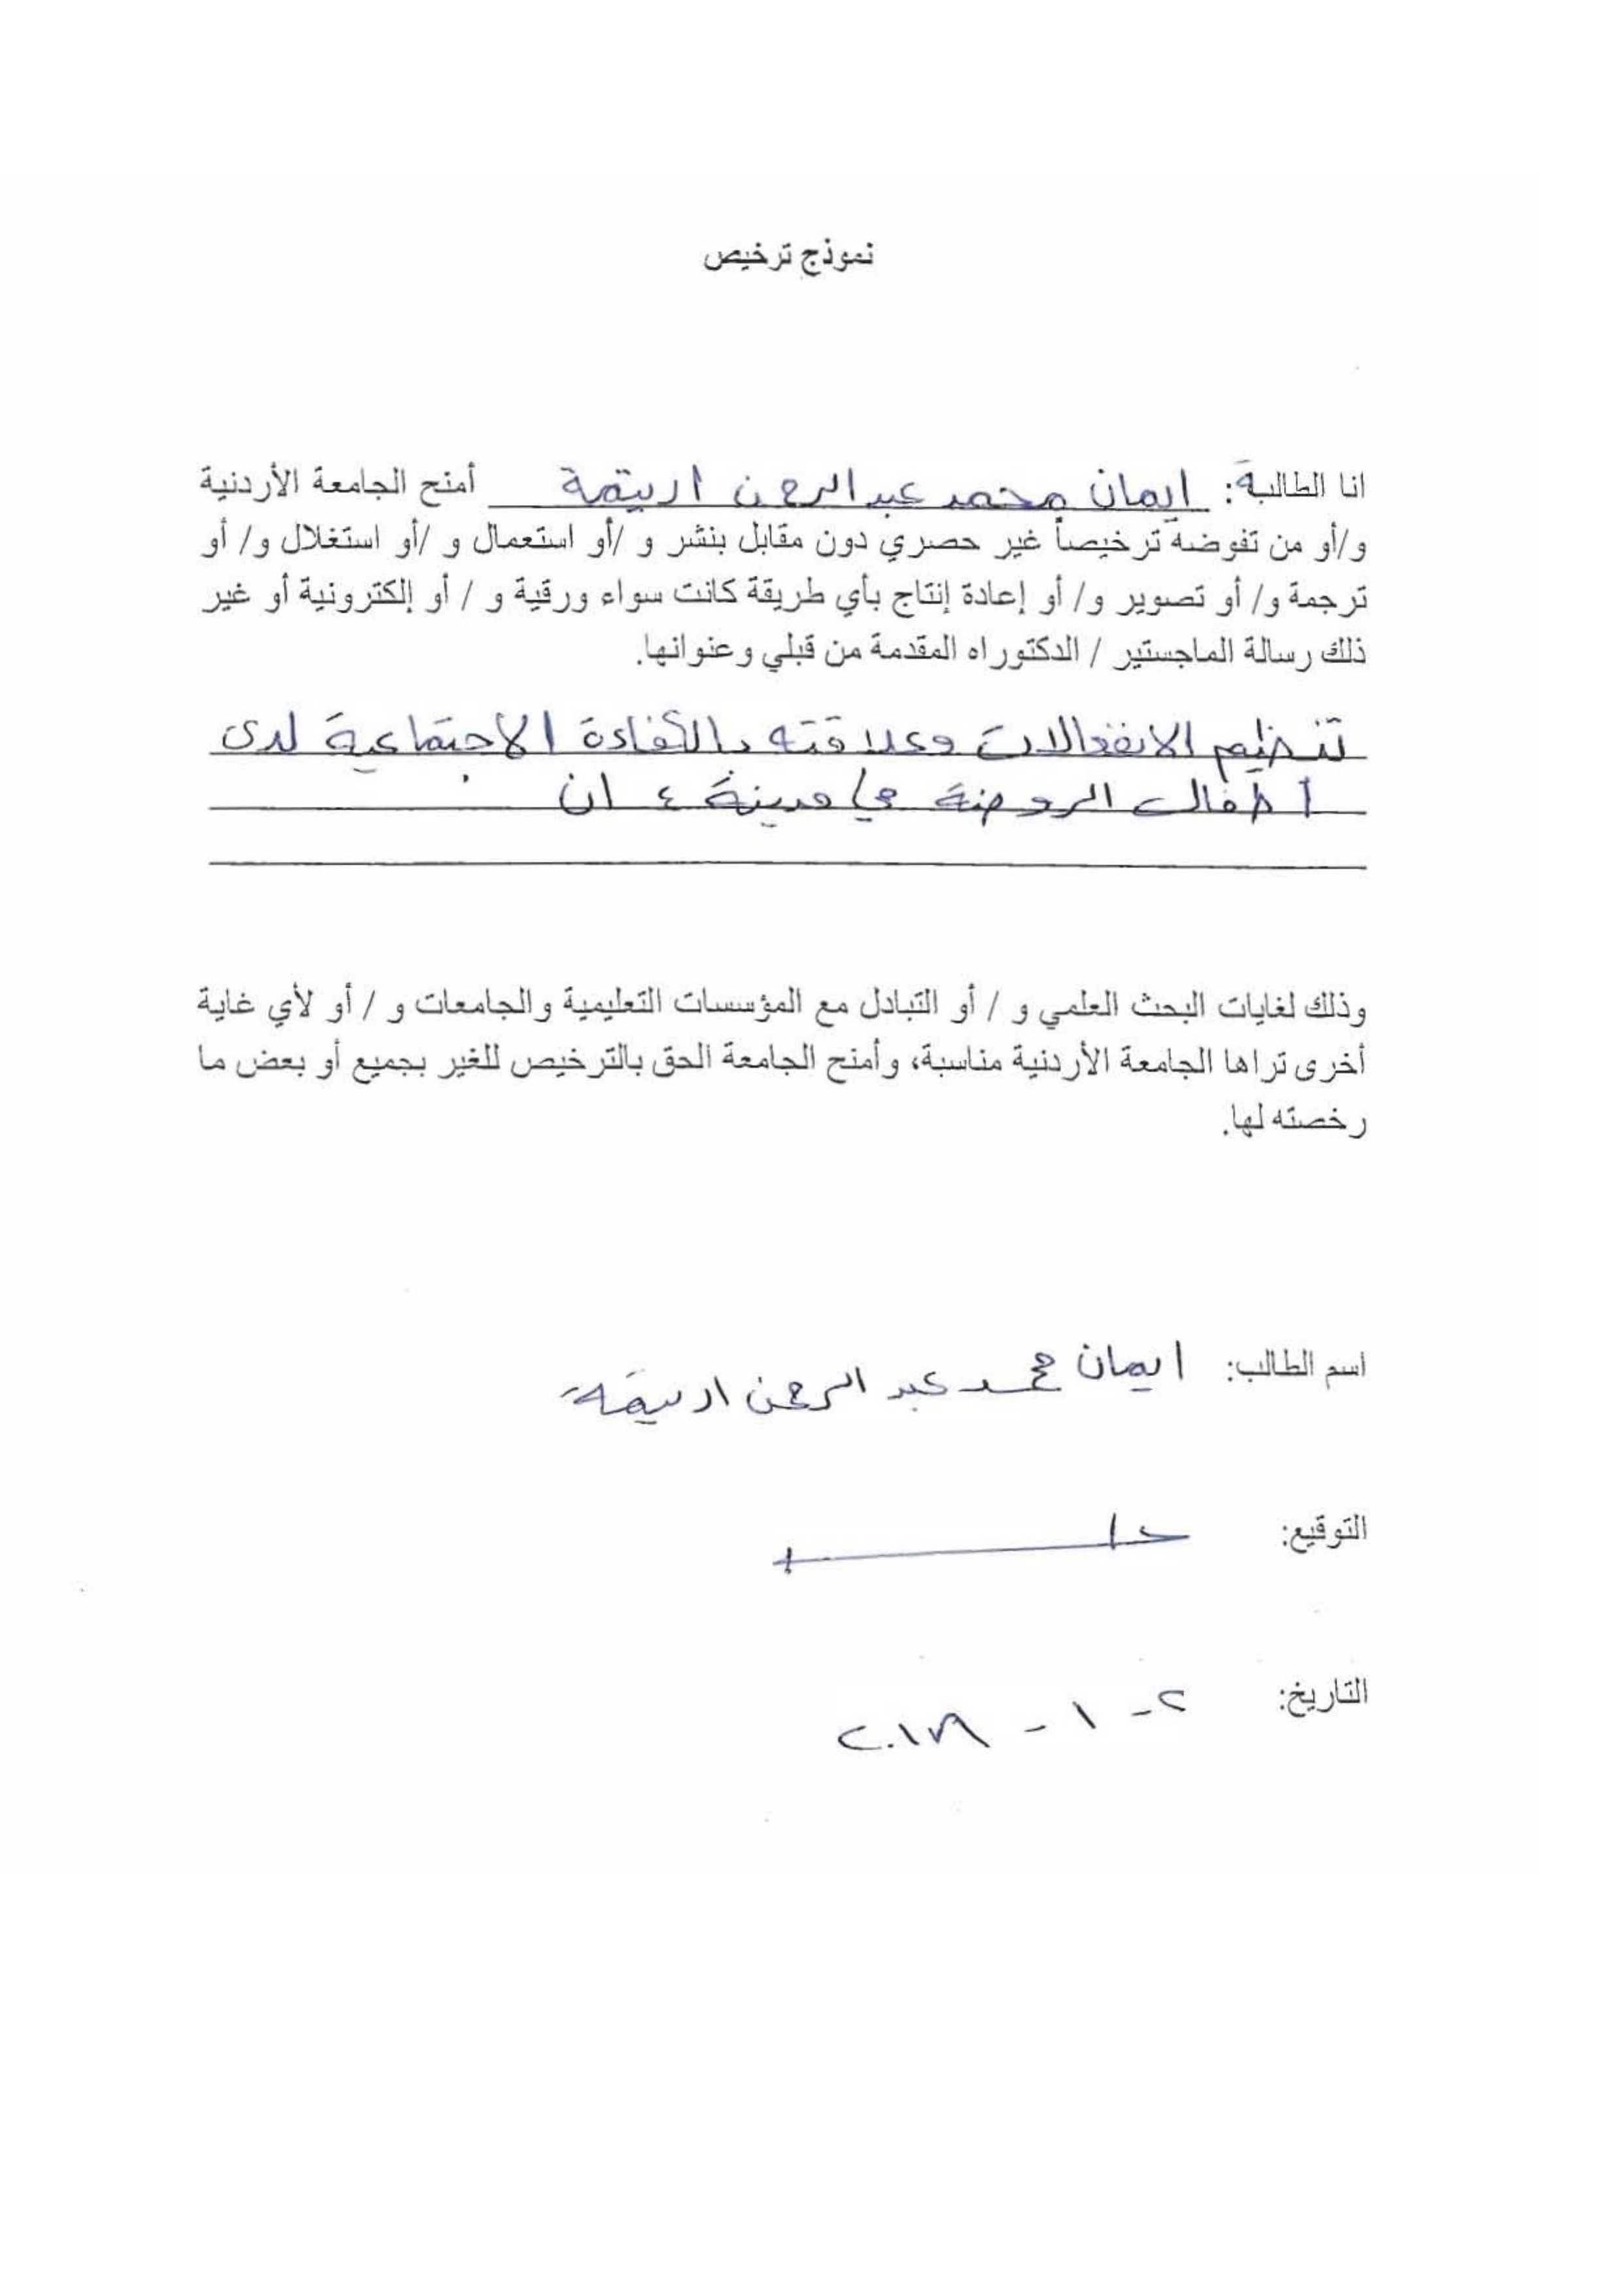 نموذج ترخيص
انا الطالبة: ايمان محمد عبد الرحمن اربيقة أمنح الجامعة الأردنية
و/أو من تفوضه ترخيصاً غير حصري دون مقابل بنشر و /أو استعمال و /أو استغلال و/ أو
ترجمة و/ أو تصوير و/ أو إعادة إنتاج بأي طريقة كانت سواء ورقية و / أو إلكترونية أو غير
ذلك رسالة الماجستير / الدكتوراه المقدمة من قبلي وعنوانها.
تنظيم الانفعالات وعلاقته بالكفاءة الاجتماعية لدى
أطفال الروضة في مدينة عمان
وذلك لغايات البحث العلمي و / أو التبادل مع المؤسسات التعليمية والجامعات و / أو لأي غاية
أخرى تراها الجامعة الأردنية مناسبة، وأمنح الجامعة الحق بالترخيص للغير بجميع أو بعض ما
رخصته لها.
اسم الطالب: ايمان محمد عبد الرحمن اربيقة
التوقيع:
التاريخ: ٢ - ١ -